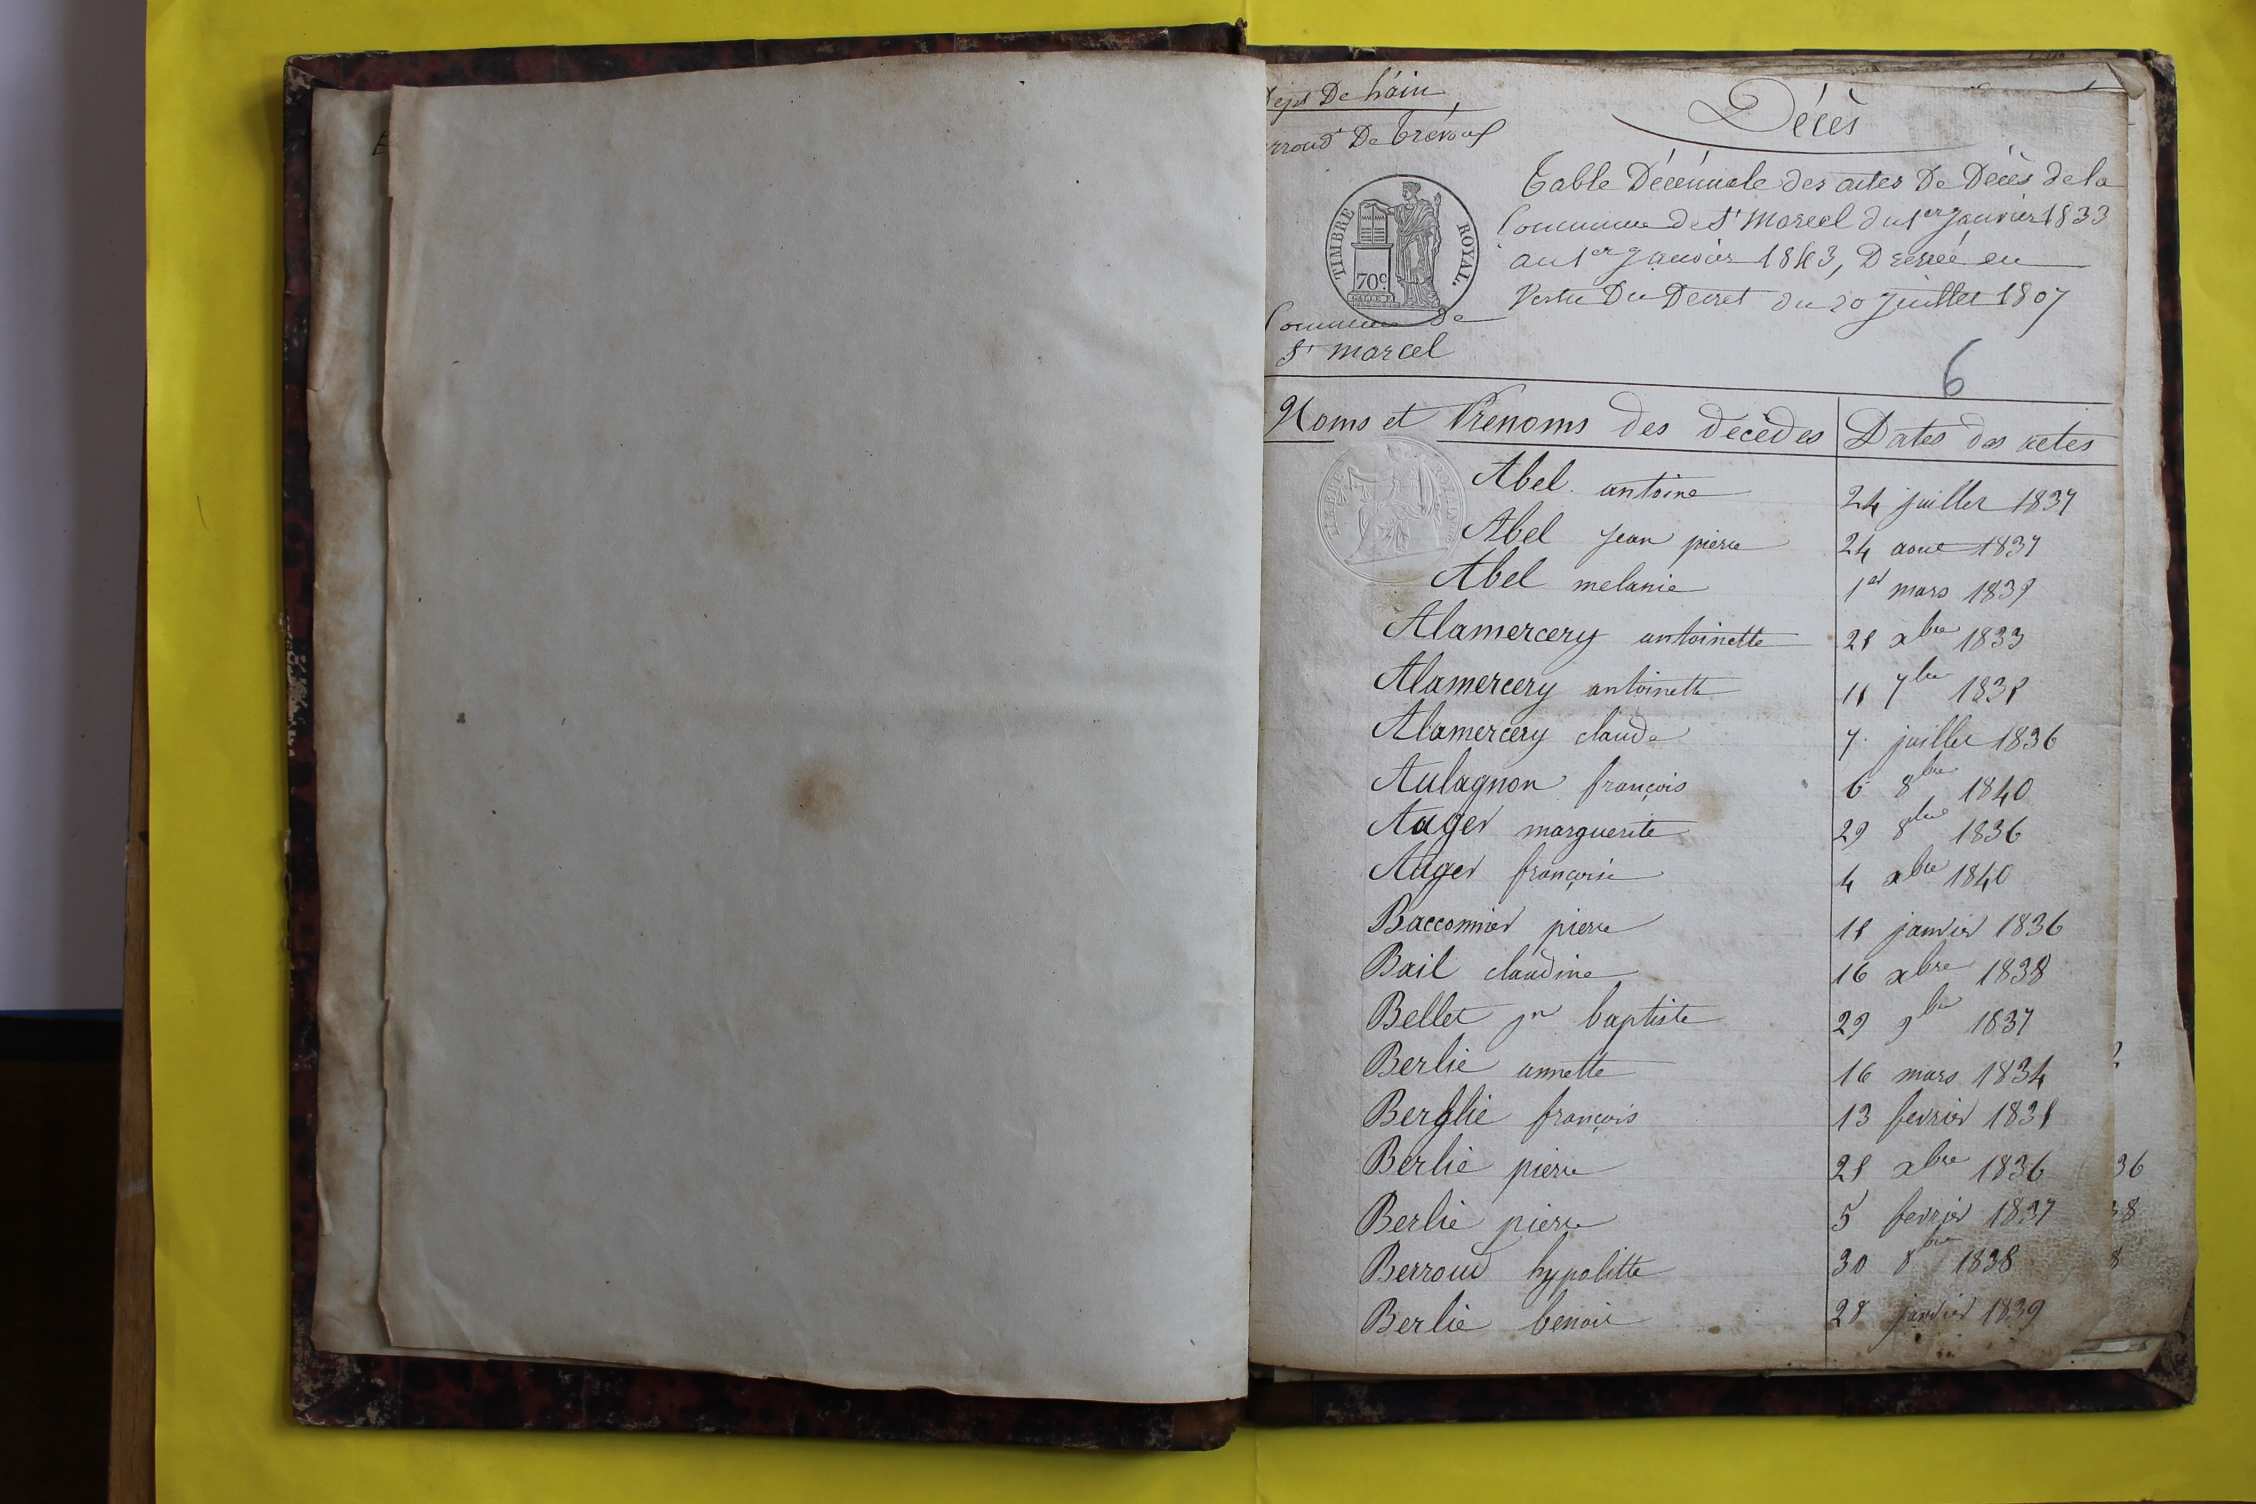 Dept De L'ain
arrond^t De Trévoux
Décès
Table Décennale des actes De Décès de la
Commune de S^t Marcel du 1^er Janvier 1833
au 1^er Janvier 1843, Dressée en
Vertu Du Decret du 20 Juillet 1807
TIMBRE ROYAL.
70^c.
Commune De
S^t marcel
6
Noms et Prénoms des décédés Dates des actes
Abel antoine 24 juillet 1837
Abel jean pierre 24 aout 1837
Abel melanie 1^er mars 1839
Alamercery antoinette 28 x^bre 1833
Alamercery antoinette 18 7^bre 1838
Alamercery claude 7 juillet 1836
Aulagnon françois 6 8^bre 1840
Auger marguerite 29 8^bre 1836
Auger françoise 4 x^bre 1840
Bacconnier pierre 18 janvier 1836
Bail claudine 16 x^bre 1838
Bellet j^n baptiste 29 9^bre 1837
Berlie annette 16 mars 1834
Berlie françois 13 fevrier 1838
Berlie pierre 28 x^bre 1836
Berlie pierre 5 fevrier 1837
Berroud hypolitte 30 8^bre 1838
Berlie benoit 28 janvier 1839
36
38
8